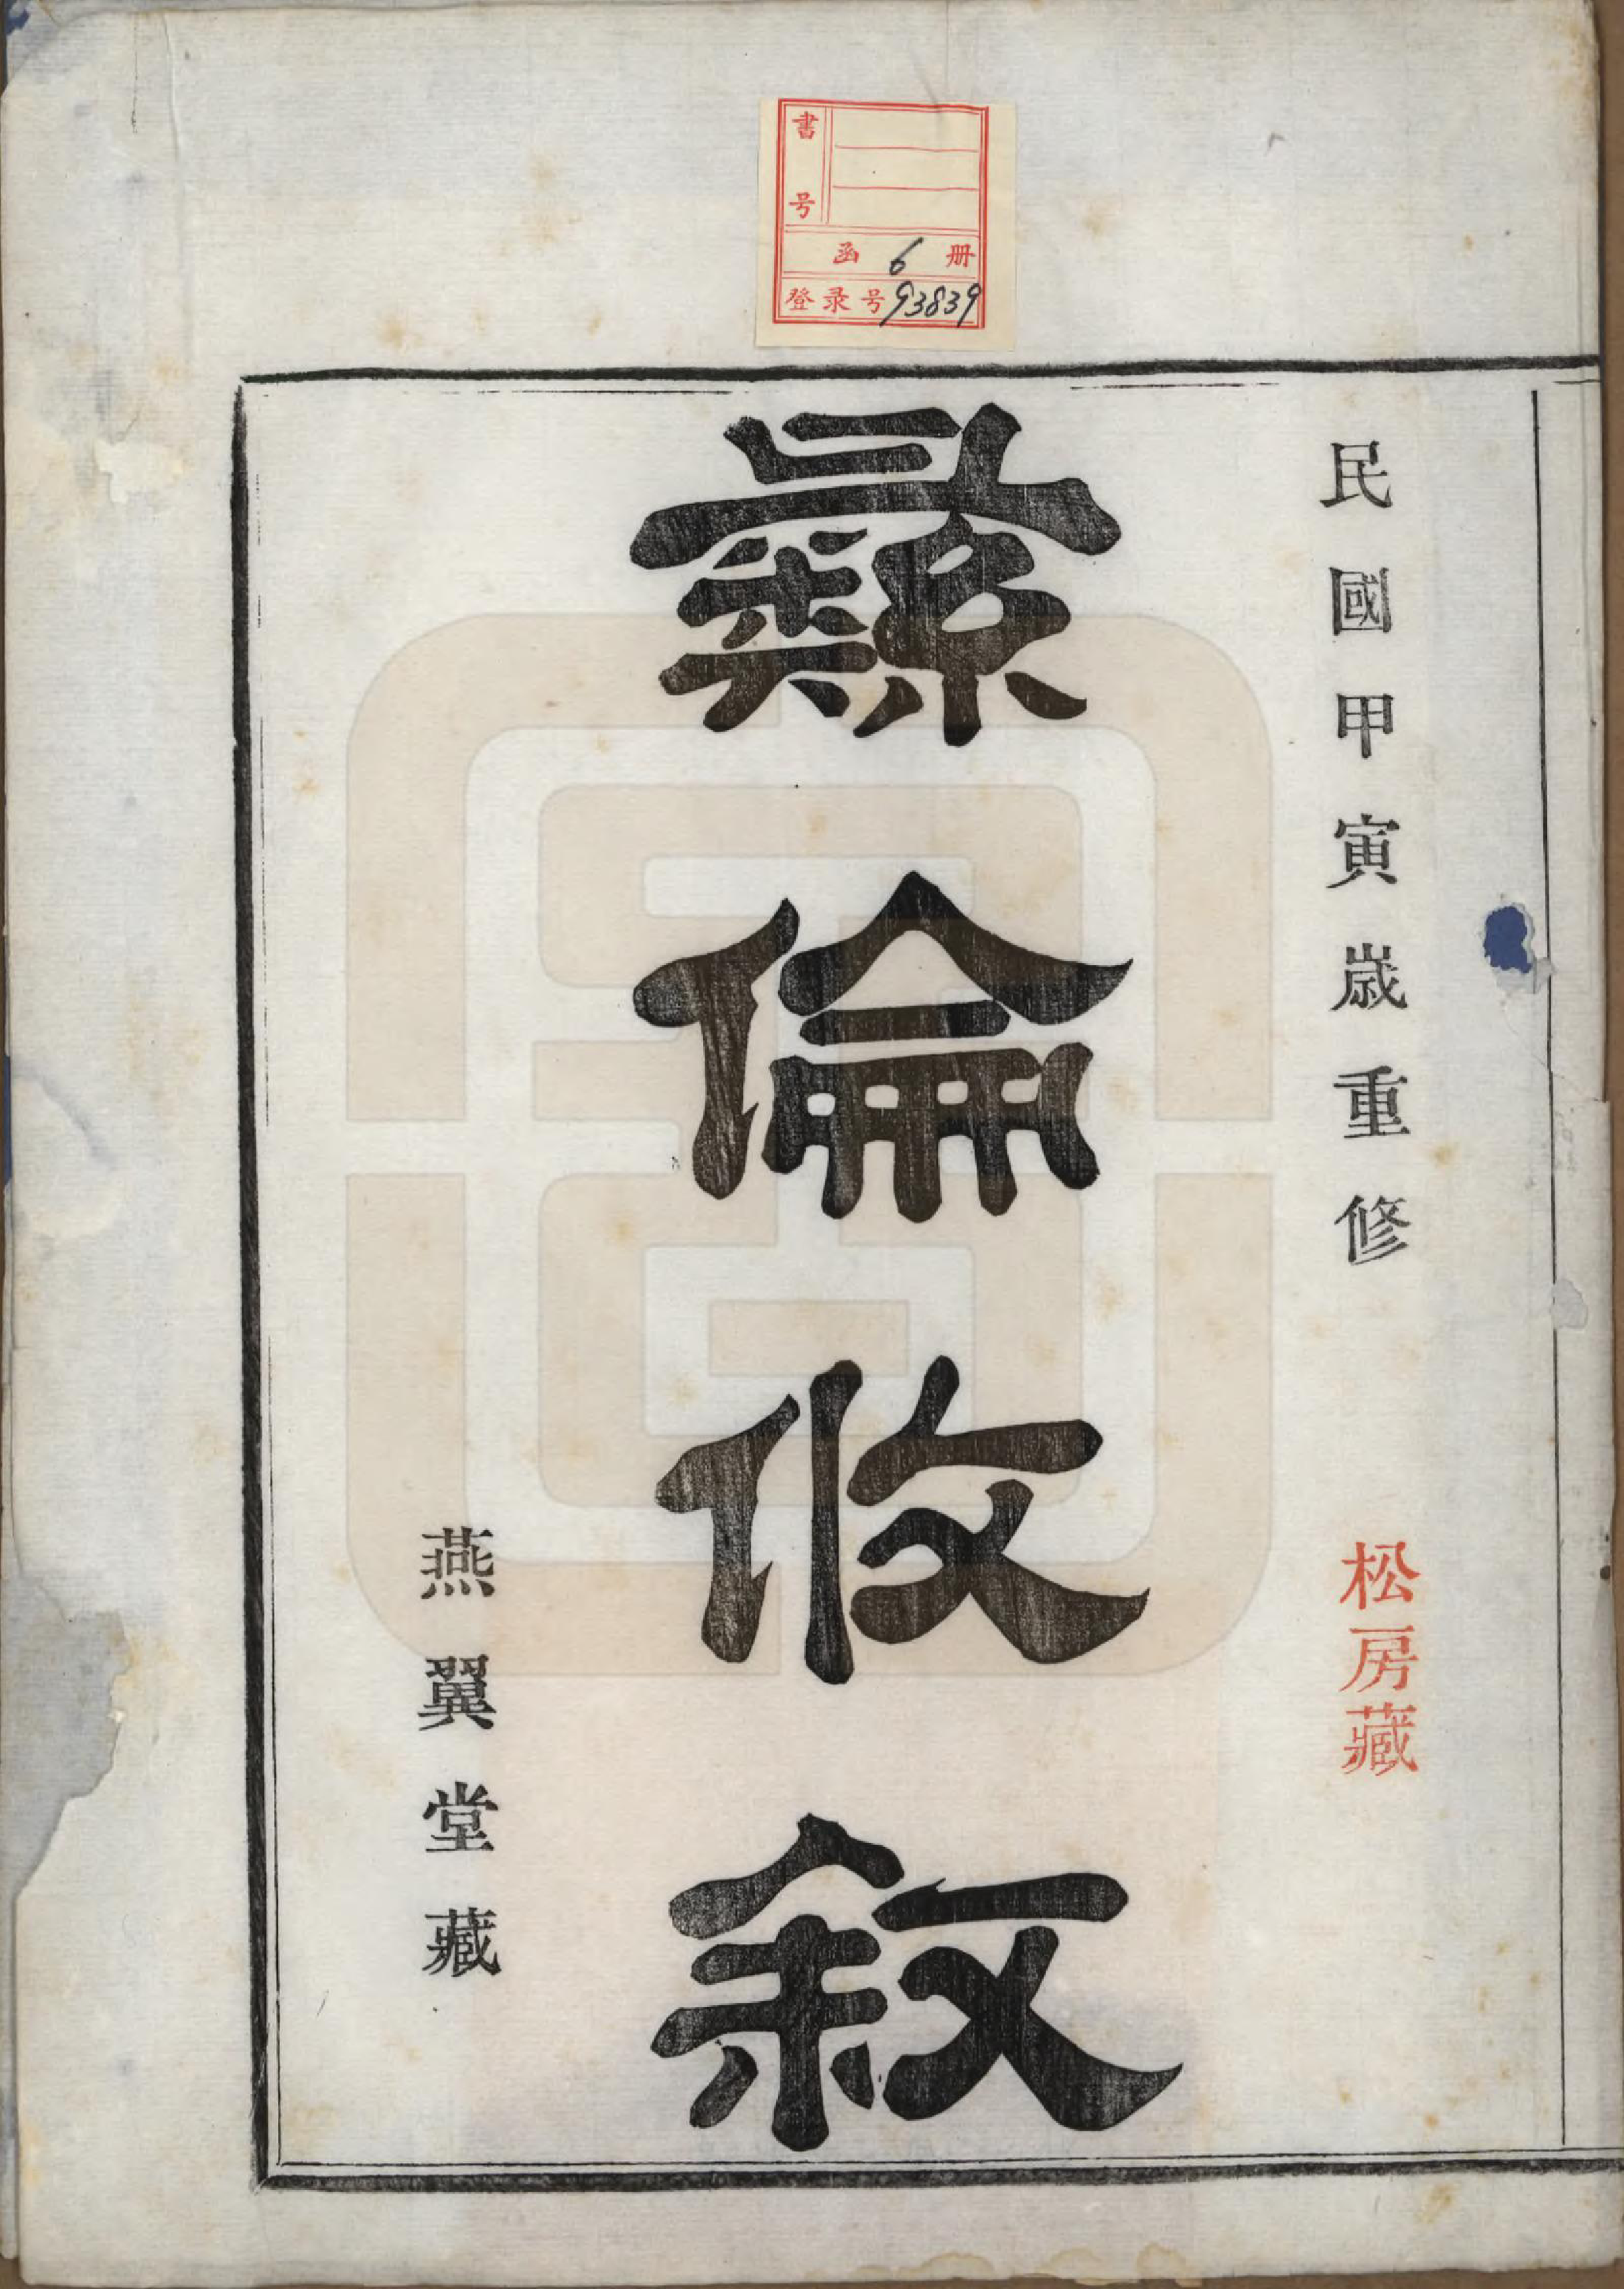 書号
函 6 册
登录号 93839
民國甲寅歳重修
松房藏
彝倫攸敘
燕翼堂藏